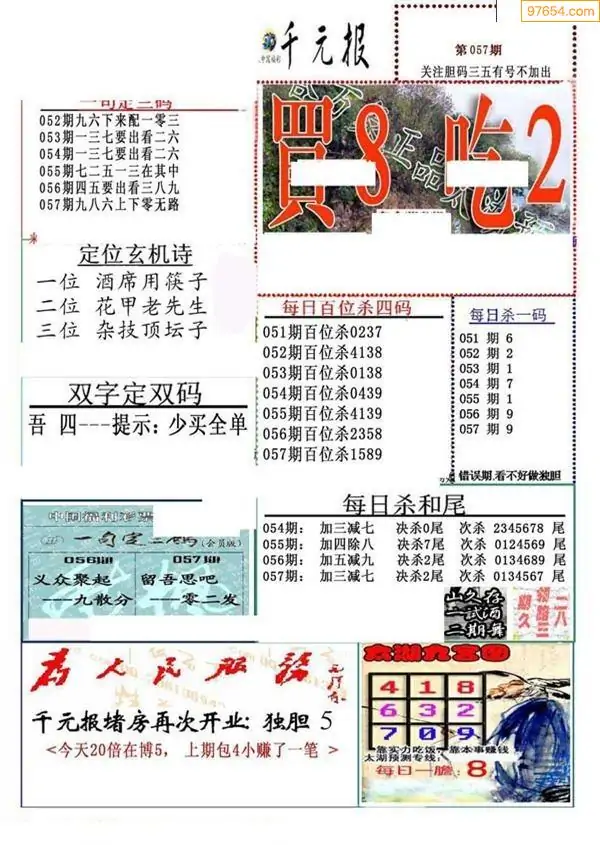 97654.com
千元报
第057期
关注胆码三五有号不加出
一句定三码
052期九六下来配一零三
053期一三七要出看二六
054期一三七要出看二六
055期七二五一三在其中
056期四五要出看三八九
057期九八六上下零无路
買8 吃2
定位玄机诗
一位 酒席用筷子
二位 花甲老先生
三位 杂技顶坛子
每日百位杀四码
051期百位杀0237
052期百位杀4138
053期百位杀0138
054期百位杀0439
055期百位杀4139
056期百位杀2358
057期百位杀1589
每日杀一码
051 期 6
052 期 2
053 期 1
054 期 7
055 期 1
056 期 9
057 期 9
错误期.看不好做独胆
双字定双码
吾 四---提示:少买全单
每日杀和尾
054期: 加三减七 决杀0尾 次杀 2345678 尾
055期: 加四除八 决杀7尾 次杀 0124569 尾
056期: 加五减九 决杀2尾 次杀 0134689 尾
057期: 加三减七 决杀2尾 次杀 0134567 尾
中国福利彩票
一句定二码(会员版)
056期 057期
义众聚起 留吾思吧
——九散分 ——零二发
为人民服务
千元报堵房再次开业:独胆 5
<今天20倍在博5, 上期包4小赚了一笔 >
太湖九宫图
4 1 8
6 3 2
7 0 9
靠实力吃饭,靠本事赚钱
太湖预测专线:
每日一胆: 8